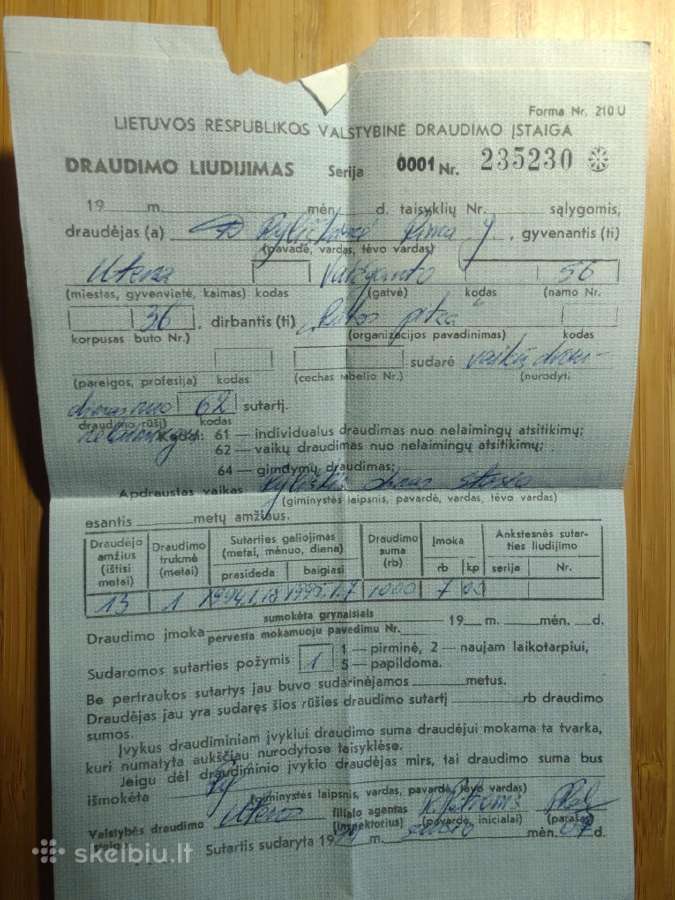 Forma Nr. 210 U
LIETUVOS RESPUBLIKOS VALSTYBINĖ DRAUDIMO ĮSTAIGA
DRAUDIMO LIUDIJIMAS Serija 0001 Nr. 235230
19 m. mėn. d. taisyklių Nr. sąlygomis,
draudėjas (a) , gyvenantis (ti)
(pavardė, vardas, tėvo vardas)
Utena 56
(miestas, gyvenvietė, kaimas) kodas (gatvė) kodas (namo Nr.
36 , dirbantis (ti)
korpusas buto Nr.) (organizacijos pavadinimas) kodas
sudarė vaikų drau-
(pareigos, profesija) kodas (cechas tabelio Nr.) (nurodyti
dimas nuo 62 sutartį.
draudimo rūšį) kodas
Kodai: 61 — individualus draudimas nuo nelaimingų atsitikimų;
62 — vaikų draudimas nuo nelaimingų atsitikimų;
64 — gimdymų draudimas;
Apdraustas vaikas
(giminystės laipsnis, pavardė, vardas, tėvo vardas)
esantis metų amžiaus.
Draudėjo amžius (ištisi metai) Draudimo trukmė (metai) Sutarties galiojimas (metai, mėnuo, diena) Draudimo suma (rb) Įmoka Ankstesnės sutarties liudijimo
prasideda baigiasi rb kp serija Nr.
13 1 1994.1.18 1995.1.7 1000 7
Draudimo įmoka sumokėta grynaisiais 19 m. mėn. d.
pervesta mokamuoju pavedimu Nr.
Sudaromos sutarties požymis 1 1 — pirminė, 2 — naujam laikotarpiui,
5 — papildoma.
Be pertraukos sutartys jau buvo sudarinėjamos metus.
Draudėjas jau yra sudaręs šios rūšies draudimo sutartį rb draudimo
sumos.
Įvykus draudiminiam įvykiui draudimo suma draudėjui mokama ta tvarka,
kuri numatyta aukščiau nurodytose taisyklėse.
Jeigu dėl draudiminio įvykio draudėjas mirs, tai draudimo suma bus
išmokėta
(giminystės laipsnis, vardas, pavardė, tėvo vardas)
Valstybės draudimo Utenos filialo agentas
(inspektorius) (pavardė, inicialai) (parašas)
Sutartis sudaryta 19 m. mėn. 07 d.
skelbiu.lt